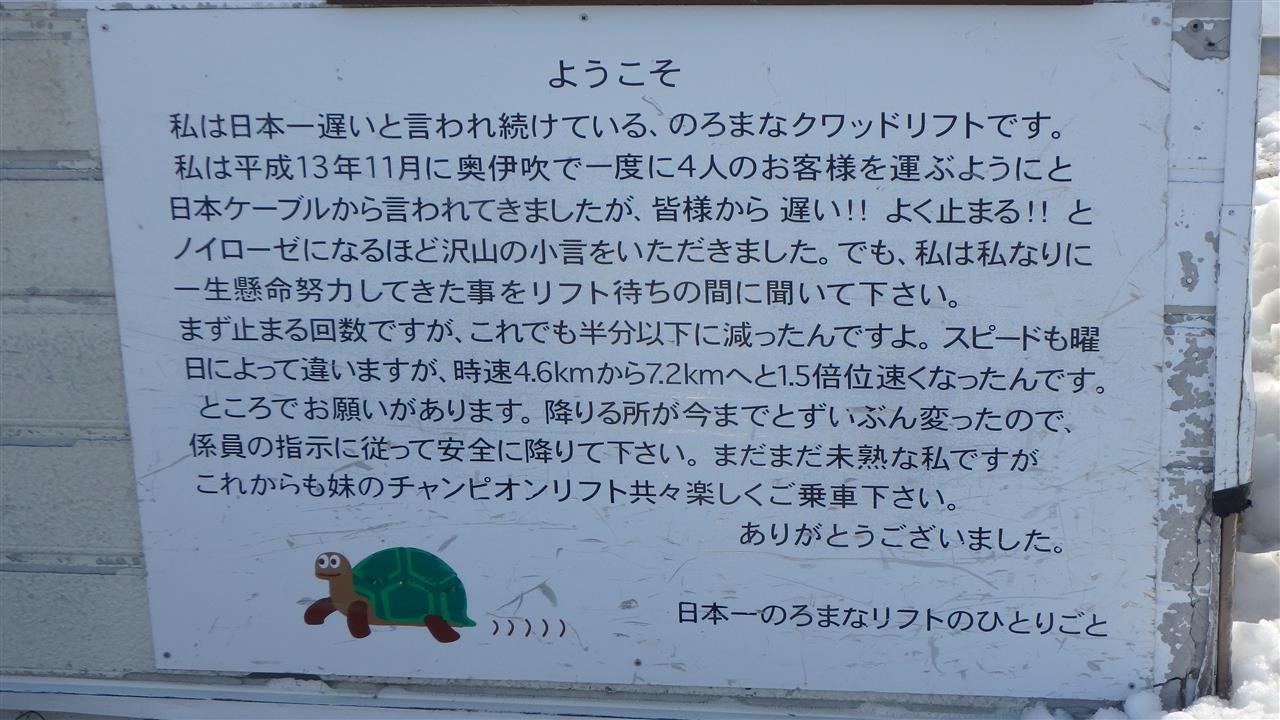 ようこそ
私は日本一遅いと言われ続けている、のろまなクワッドリフトです。
私は平成13年11月に奥伊吹で一度に4人のお客様を運ぶようにと
日本ケーブルから言われてきましたが、皆様から 遅い!! よく止まる!! と
ノイローゼになるほど沢山の小言をいただきました。でも、私は私なりに
一生懸命努力してきた事をリフト待ちの間に聞いて下さい。
まず止まる回数ですが、これでも半分以下に減ったんですよ。スピードも曜
日によって違いますが、時速4.6kmから7.2kmへと1.5倍位速くなったんです。
ところでお願いがあります。降りる所が今までとずいぶん変ったので、
係員の指示に従って安全に降りて下さい。まだまだ未熟な私ですが
これからも妹のチャンピオンリフト共々楽しくご乗車下さい。
ありがとうございました。
日本一のろまなリフトのひとりごと